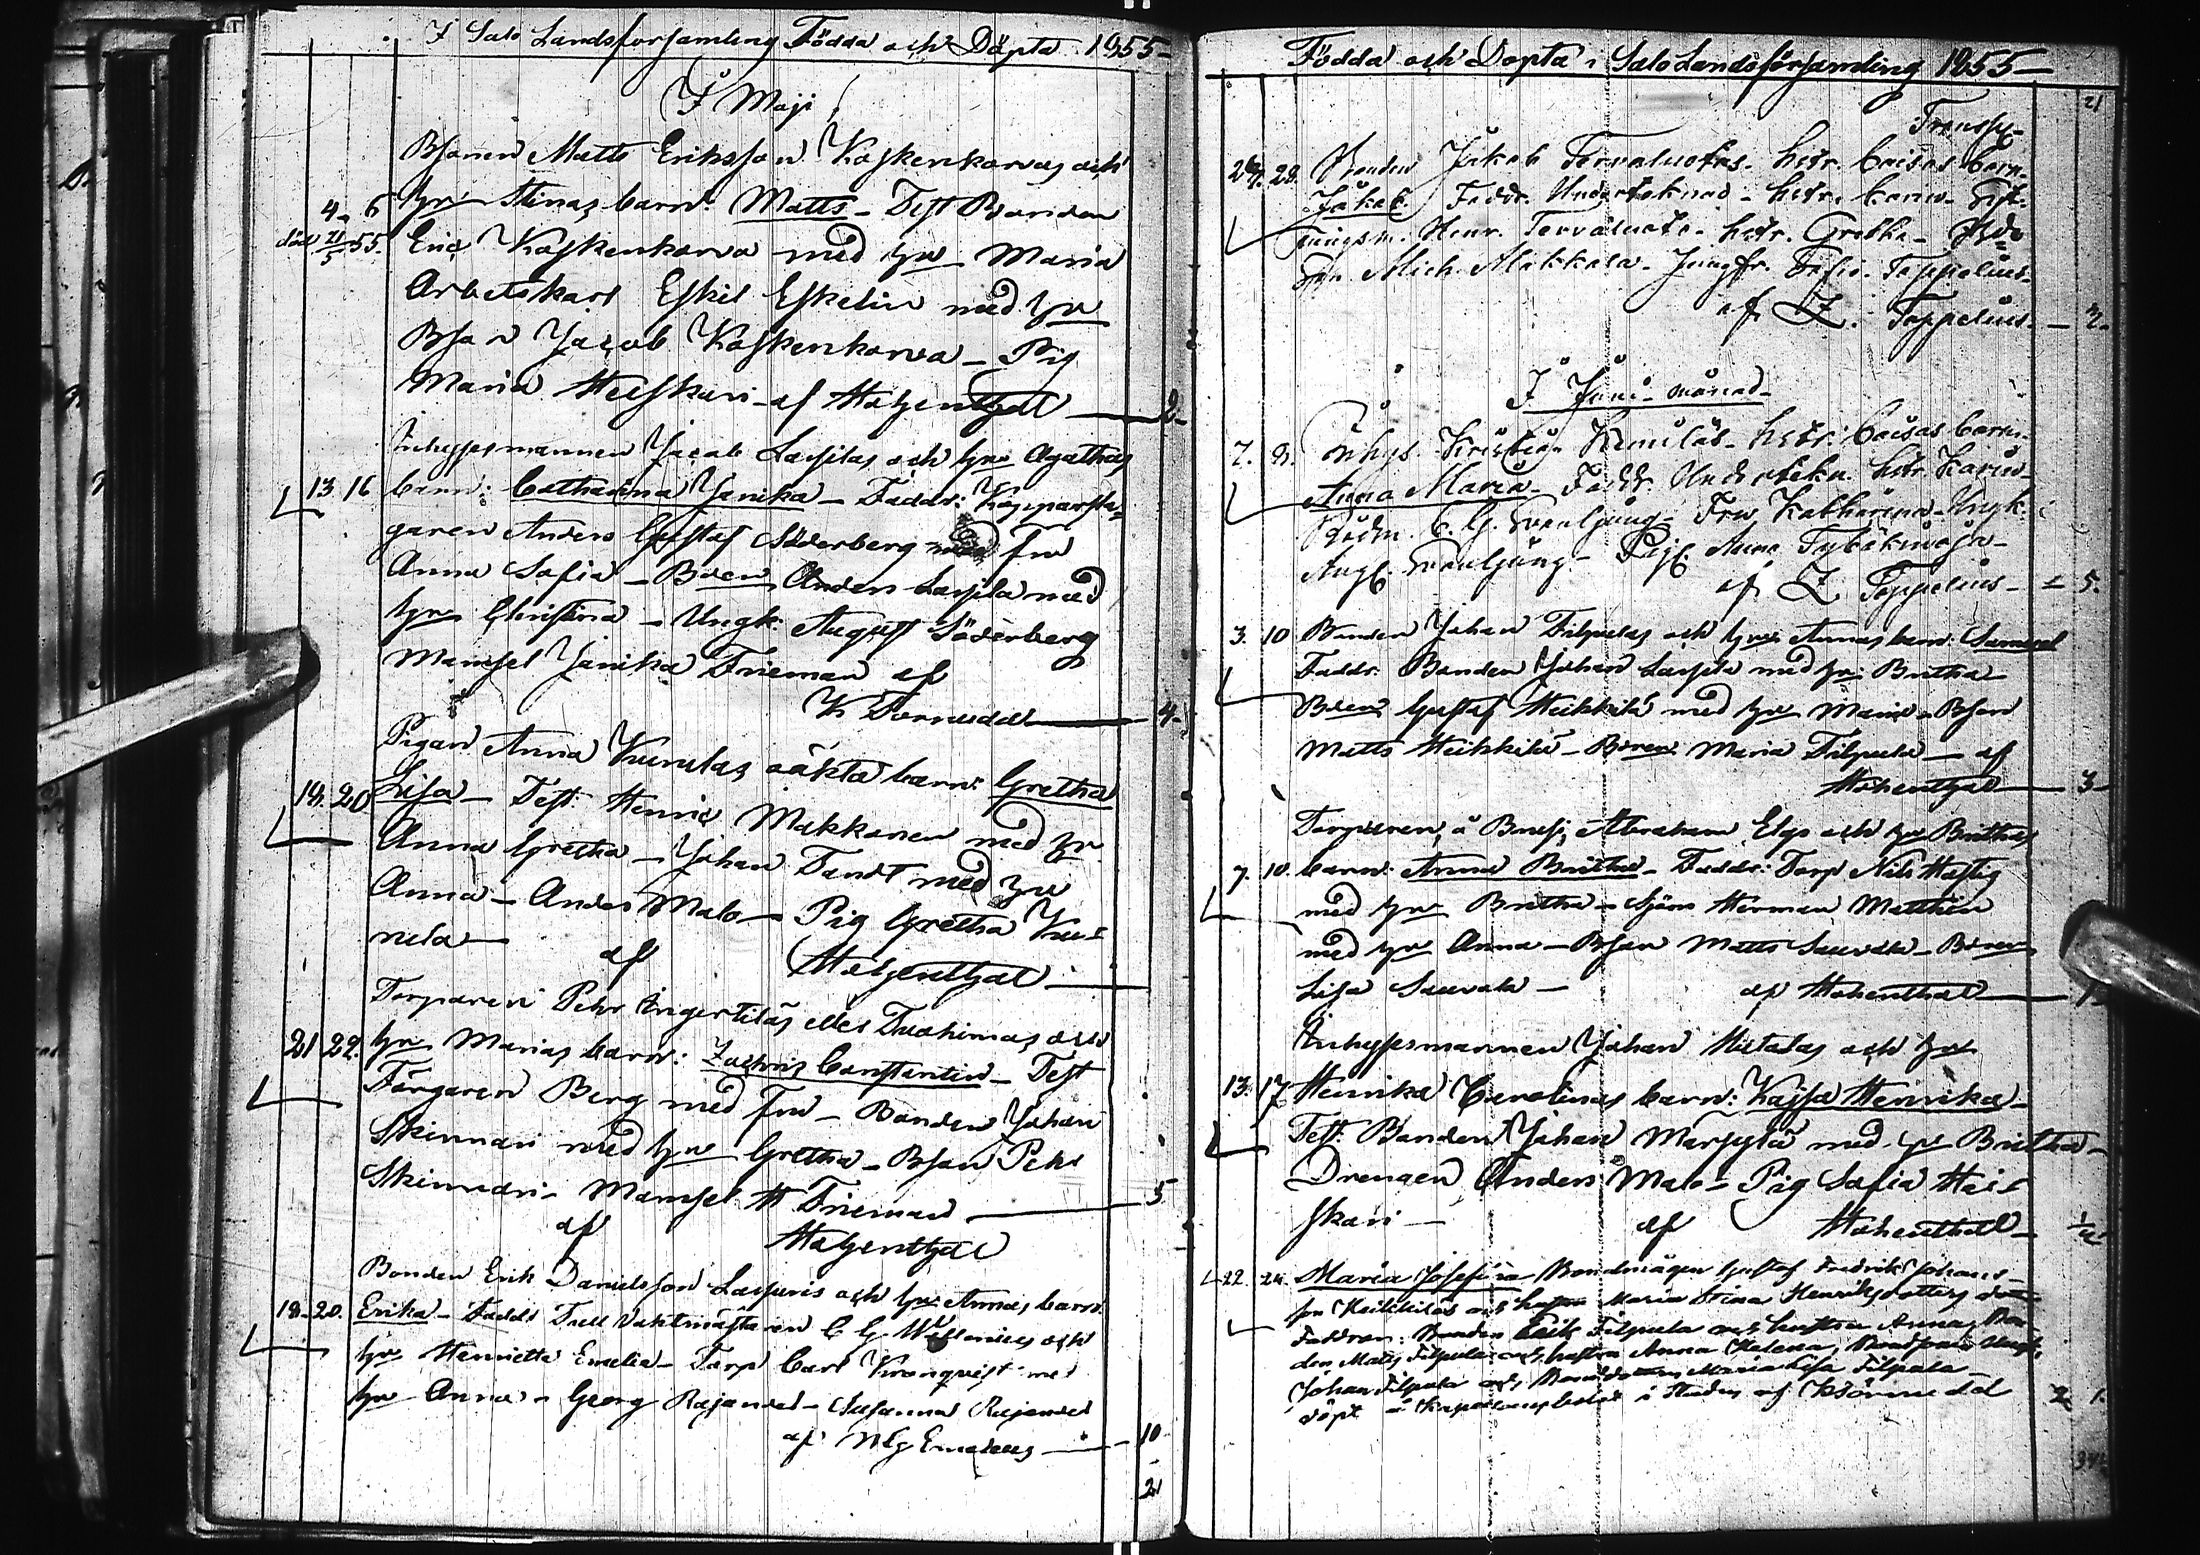 I Salo Landsforsamling Födda och Döpta 1855
I Maji
Bsonen Matts Eriksson Koskenkorvas och
4. 6 hu Stinas barn: Matts - Test Bonden
död 21/5 55. Eric Koskenkorva med hu Maria
Arbetskarl Eskil Eskelin med hu
Bson Jacob Koskenkorva - Pig
Maria Heiskari af Hohenthal 2
Inhysesmannen Jacob Lassilas och hu Agathas
13 16 barn: Catharina Janika - Faddr: Kopparsla-
garen Anders Gustaf Söderberg med fru
Anna Sofia - Bden Anders Lassila med
hu Christina - Ungk: August Söderberg
Mamsel Janika Frieman af
K Tornudd 4
Pigan Anna Kunelas oäkta barn: Gretha
18. 20 Lisa - Test: Henric Makkonen med hu
Anna Gretha - Johan Tandt med hu
Anna - Anders Malo - Pig Gretha Ku-
nela - af Hohenthal
Torparen Pehr Ingertiläs eller Tuohimas och
21 22. hu Marias barn: Zachris Constantin - Test
Färgaren Berg med fru - Bonden Johan
Skinnari med hu Gretha - Bson Pehr
Skinnari - Mamsel H Frieman 5
af Hohenthal
Bonden Erik Danielsson Lassuris och hu Annas barn
18. 20. Erika - Faddr Tull Vaktmästaren C G Willenius och
hu Henrietta Emelia - Torp Carl Kronqvist med
hu Anna - Georg Rajander - Susanna Rajander
af Emeleus 10
21
Födda och Döpta i Salo Landsförsamling 1855
21
Transp.
28. Bonden Jakob Tervaluotos hstr. Caisas barn
Jakob. Faddr. Undertecknad - hstr.
Jungm. Henr. Tervaluoto - hstr. Gretha
Mich. Mikkola - Jungfr. Sofia Toppelius
af Z. Toppelius - 2.
I Juni månad
7. 8. Inhys. Kristian hstr: Caisas barn
Anna Maria - Faddr. Undertekn. hstr. Karin
C. G. Ljung - Fru Katharina - Ungk.
Aug. Ljung - Anna
af Z Toppelius - 5.
3. 10 Bonden Johan Filpulas och hu Annas barn: Samuel
Faddr. Bonden Johan Lassila med hu Britha
Bden Gustaf Heikkilä med hu Maria - Bson
Matts Heikkilä - Maria Filpula - af
Hohenthal 3
Torparen å Brusi Abraham Elgs och hu Brithas
7. 10. barn: Anna Britha - Faddr: Torp Nils Hastig
med hu Britha - Sjöm Herman Matthin
med hu Anna - Bson Matts Sauvola -
Lisa Sauvola - af Hohenthal 1
Inhysesmannen Johan Hietalas och hu
13. 17 Henrika Carolinas barn: Kajsa Henrika -
Test. Bonden Johan Marssylä med hu Britha -
Drengen Anders Malo - Pig Sofia Hei-
skari - af Hohenthal - 1/2
22. 24. Maria Josefina Bondmågen Gustaf Fredrik Johans-
son Heikkiläs och hustru Maria Stina Henriksdotters
Faddrar: Bonden Erik Filpula och hustru Anna, Bon-
den Mats Filpula och hustru Anna Helena, Bondsonen
Johan Filpula och Maria Lisa Filpula
döpt å Kapellansbolet i Staden af 2 1.